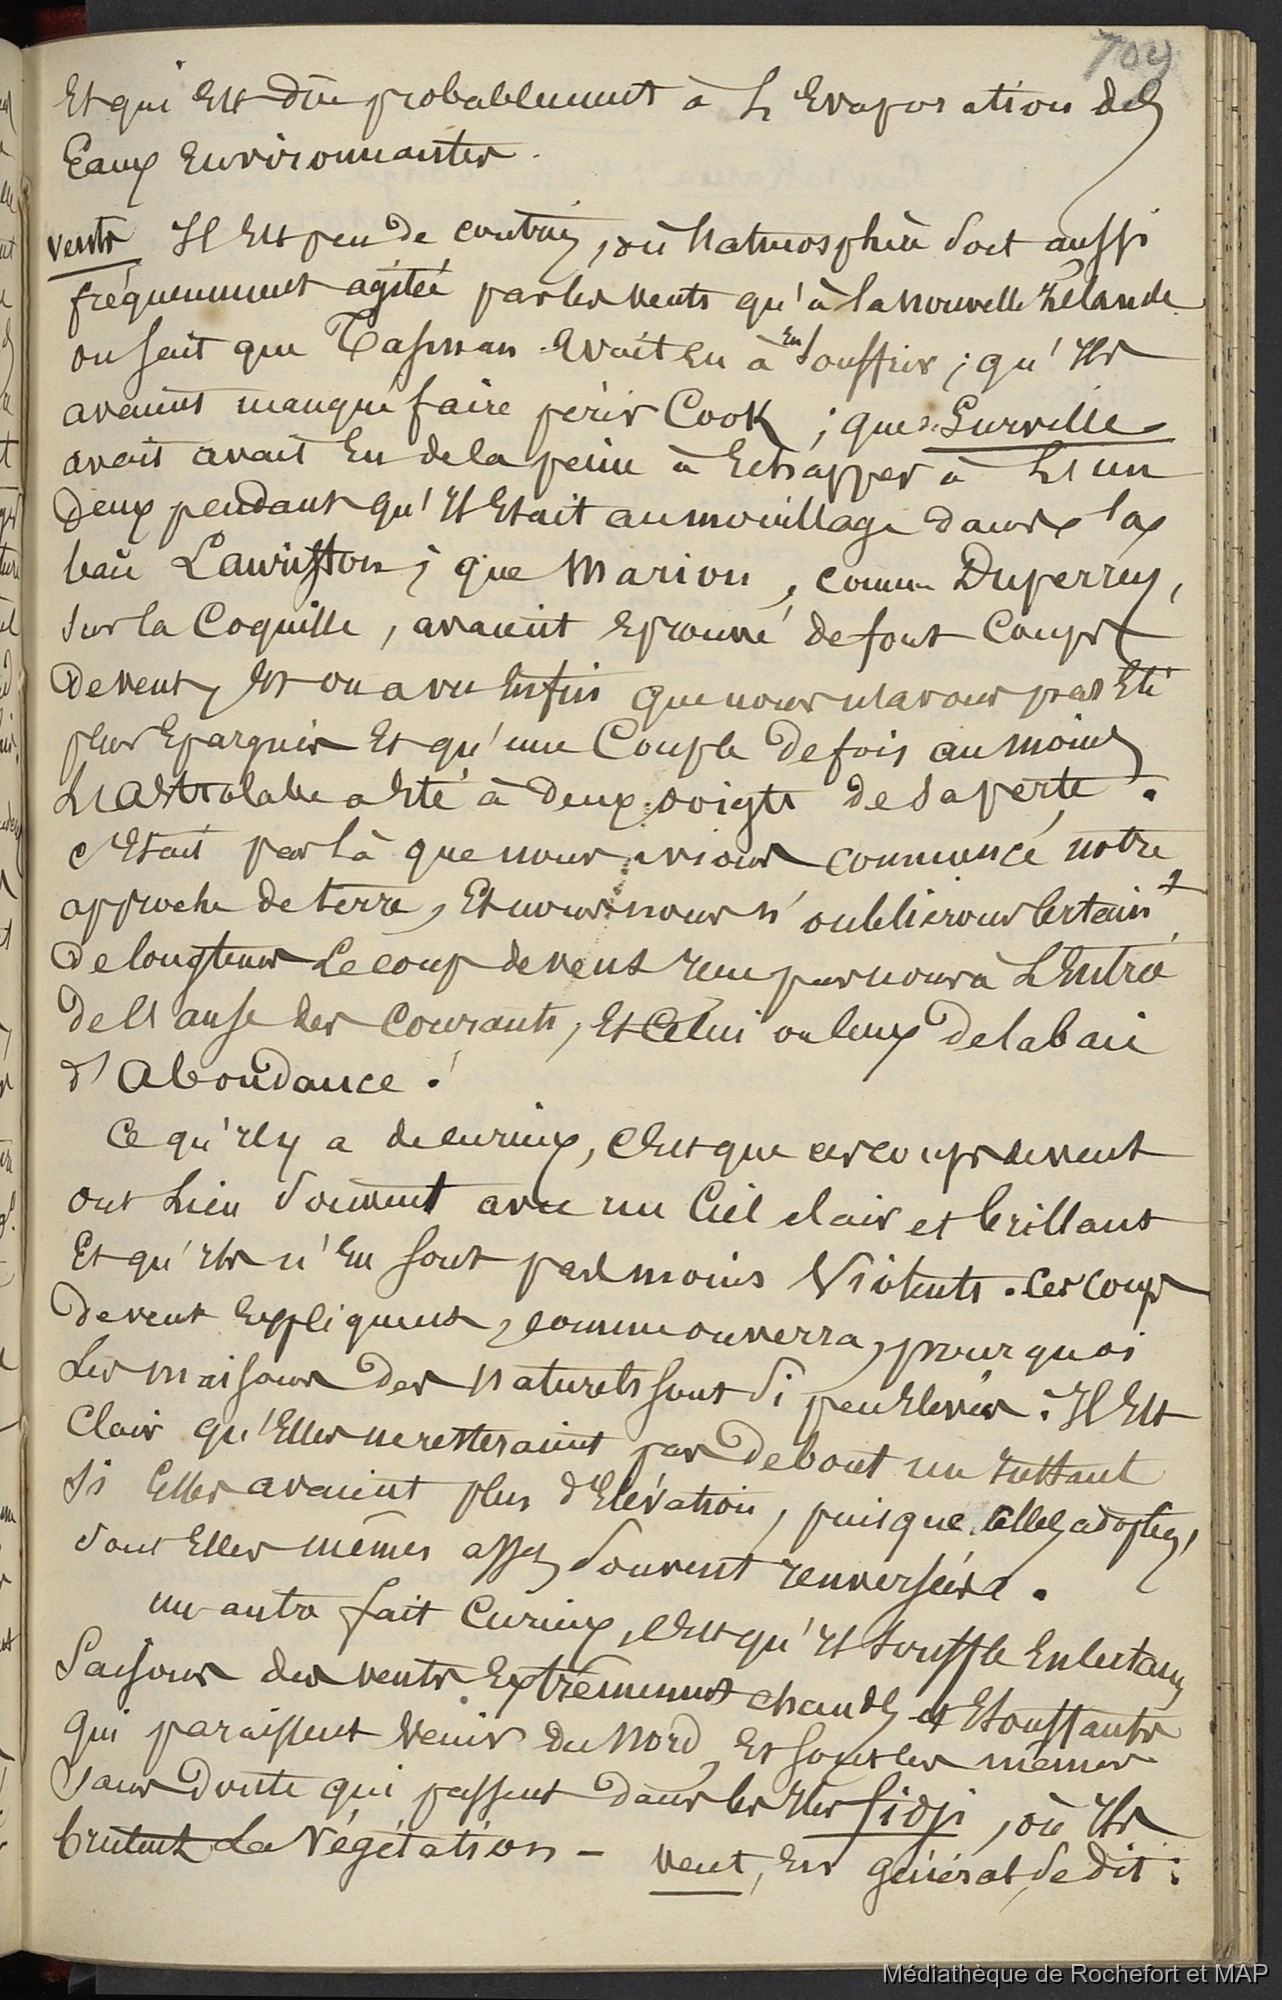 709
Et qui Est düe probablement à L'Evaporation des
Eaux Environnantes.
vents Il Est peu de contrées, où l'atmosphère soit aussi
fréquemment agitée par les vents qu'à la nouvelle Zélande
on sait que Tasman avait eu à En souffrir ; qu'Ils
avaient manqué faire périr Cook ; que Surville
avait avait Eu de la peine à Echapper à L'un
deux pendant qu'Il Etait au mouillage dans la
baie Lauriston ; que Marion, comme Duperrey,
sur la Coquille, avaient Eprouvé de fort Coups
de vent, Et on a vu Enfin que nous n'avons pas Eté
plus Epargnés Et qu'une Couple de fois au moins
L'Astrolabe a Eté à deux doigts de sa perte.
c'Etait par là que nous avions commencé notre
approche de terre, Et nous nous n'oublierons certain t
de longtems Le coup de vent reçu par nous à L'Entrée
de l'anse des Courants, Et Celui au large de la baie
d'Abondance.
Ce qu'Il y a de curieux, c'Est que ces coups de vent
ont Lieu souvent avec un Ciel clair et brillant
Et qu'Ils n'En sont pas moins Violents. Ces coups
de vent Expliquent, comme on verra, pourquoi
Les maisons des naturels sont si peu Elevées. Il Est
Clair qu'Elles ne resteraient pas debout un Instant
si Elles avaient plus d'Elévation, puisque, telles adoptées,
sont Elles mêmes assez souvent renversées.
un autre fait Curieux, c'Est qu'Il souffle En certaines
Saisons des vents Extrêmement chauds et Etouffants
qui paraissent Venir du Nord, Et sont les mêmes
sans doute qui passent dans les Iles Fidji, où Ils
brulent La Végétation — vent, En général, se dit :
Médiathèque de Rochefort et MAP